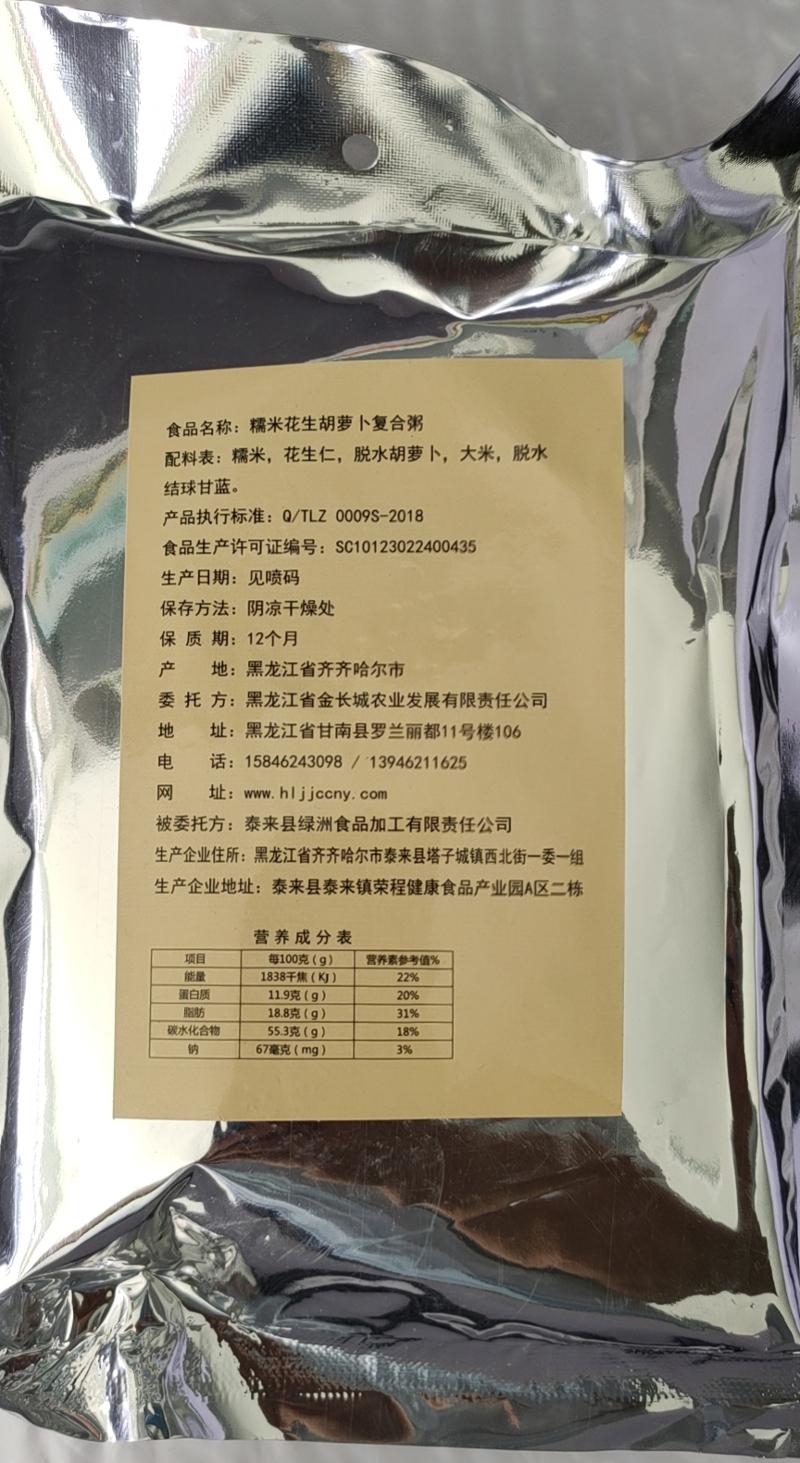 食品名称：糯米花生胡萝卜复合粥
配料表：糯米，花生仁，脱水胡萝卜，大米，脱水
结球甘蓝。
产品执行标准：Q/TLZ 0009S-2018
食品生产许可证编号：SC10123022400435
生产日期：见喷码
保存方法：阴凉干燥处
保 质 期：12个月
产 地：黑龙江省齐齐哈尔市
委 托 方：黑龙江省金长城农业发展有限责任公司
地 址：黑龙江省甘南县罗兰丽都11号楼106
电 话：15846243098 / 13946211625
网 址：www.hljjccny.com
被委托方：泰来县绿洲食品加工有限责任公司
生产企业住所：黑龙江省齐齐哈尔市泰来县塔子城镇西北街一委一组
生产企业地址：泰来县泰来镇荣程健康食品产业园A区二栋
营养成分表
项目 每100克（g） 营养素参考值%
能量 1838千焦（KJ） 22%
蛋白质 11.9克（g） 20%
脂肪 18.8克（g） 31%
碳水化合物 55.3克（g） 18%
钠 67毫克（mg） 3%